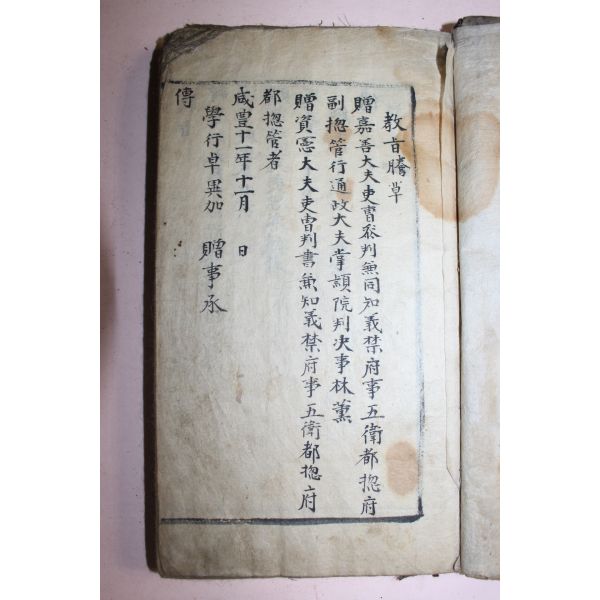 教旨謄草
贈嘉善大夫吏曹參判兼同知義禁府事五衛都摠府
副摠管行通政大夫掌隷院判决事林薰
贈資憲大夫吏曹判書兼知義禁府事五衛都摠府
都摠管者
咸豊十一年十一月 日
學行卓異加 贈事承
傳